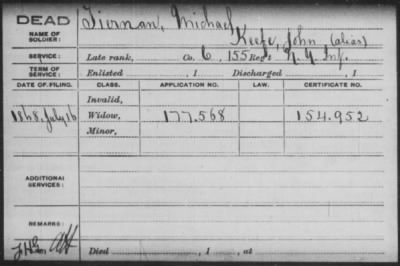 DEAD Tiernan, Michael
NAME OF SOLDIER: Keefe, John (alias)
SERVICE: Late rank, Co. C, 155 Reg't N.Y. Inf.
TERM OF SERVICE: Enlisted , 1 Discharged , 1
DATE OF FILING. CLASS. APPLICATION NO. LAW. CERTIFICATE NO.
Invalid,
1868, July 16 Widow, 177.568 154.952
Minor,
ADDITIONAL SERVICES:
REMARKS:
Died , 1 , at